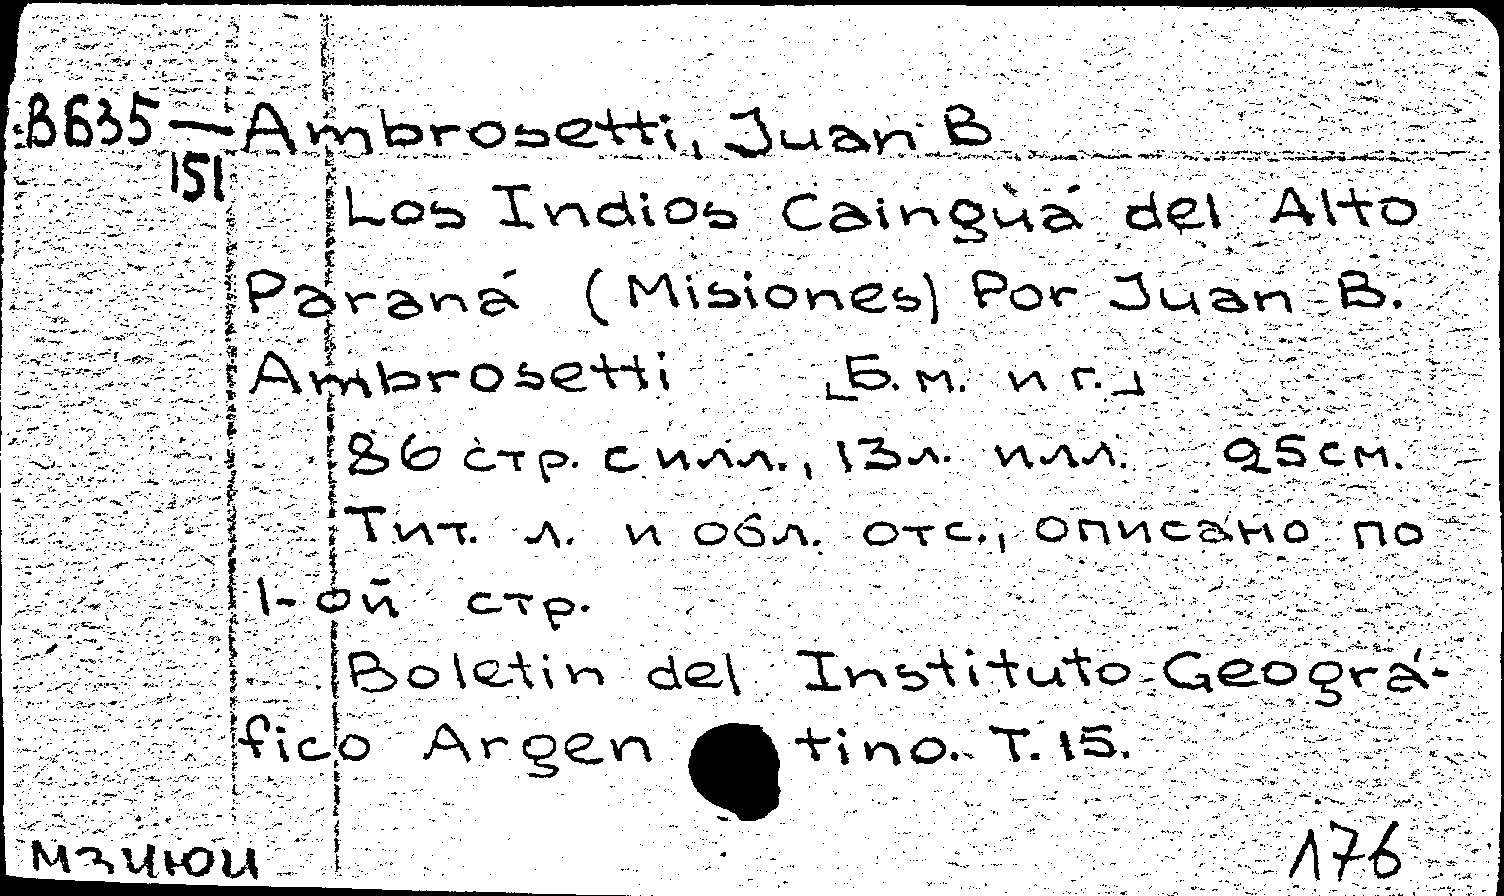 В635 — Ambrosetti, Juan B
151
Los Indios Caingùá del Alto
Paraná (Misiones) Por Juan B.
Ambrosetti [Б. м. и г.]
86 стр. с илл., 13л. илл. 25см.
Тит. л. и обл. отс., описано по
1-ой стр.
Boletin del Instituto Geográ-
fico Argen tino. T. 15.
176